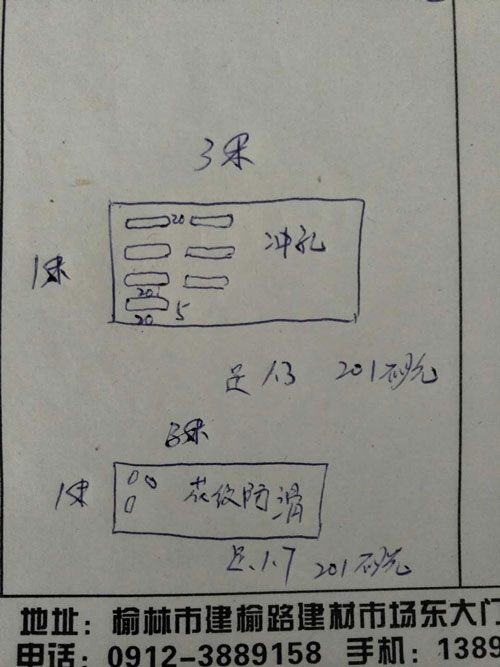 3米
20
冲孔
1米
20
20 5
足1.3 201砂光
3米
1米 花纹防滑
足.1.7 201砂光
地址:榆林市建榆路建材市场东大门
电话:0912-3889158 手机:1389